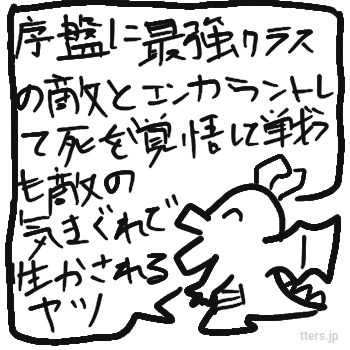 序盤に最強クラス
の敵とエンカウントし
て死を覚悟して戦う
も敵の
気まぐれで
生かされる
ヤツ
tters.jp